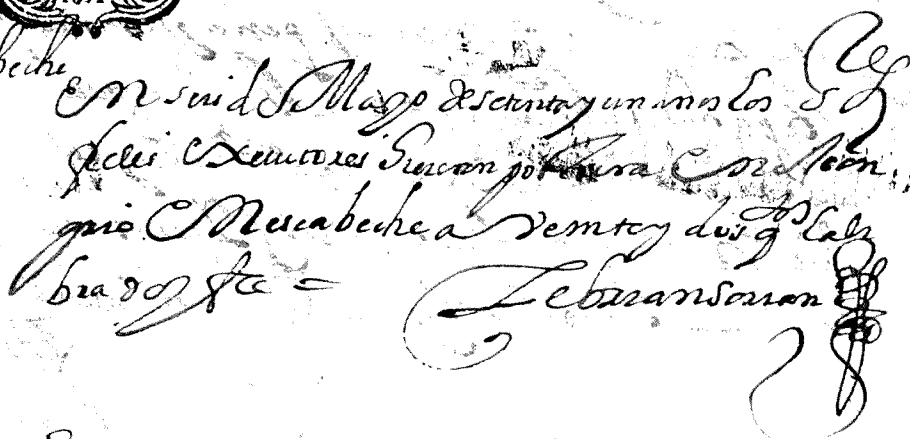 beche
En seis de Mayo de setenta y un años los S
fieles executores hicieron postura en el con
grio En escabeche a veinte y dos qs la li
bra doy fee =